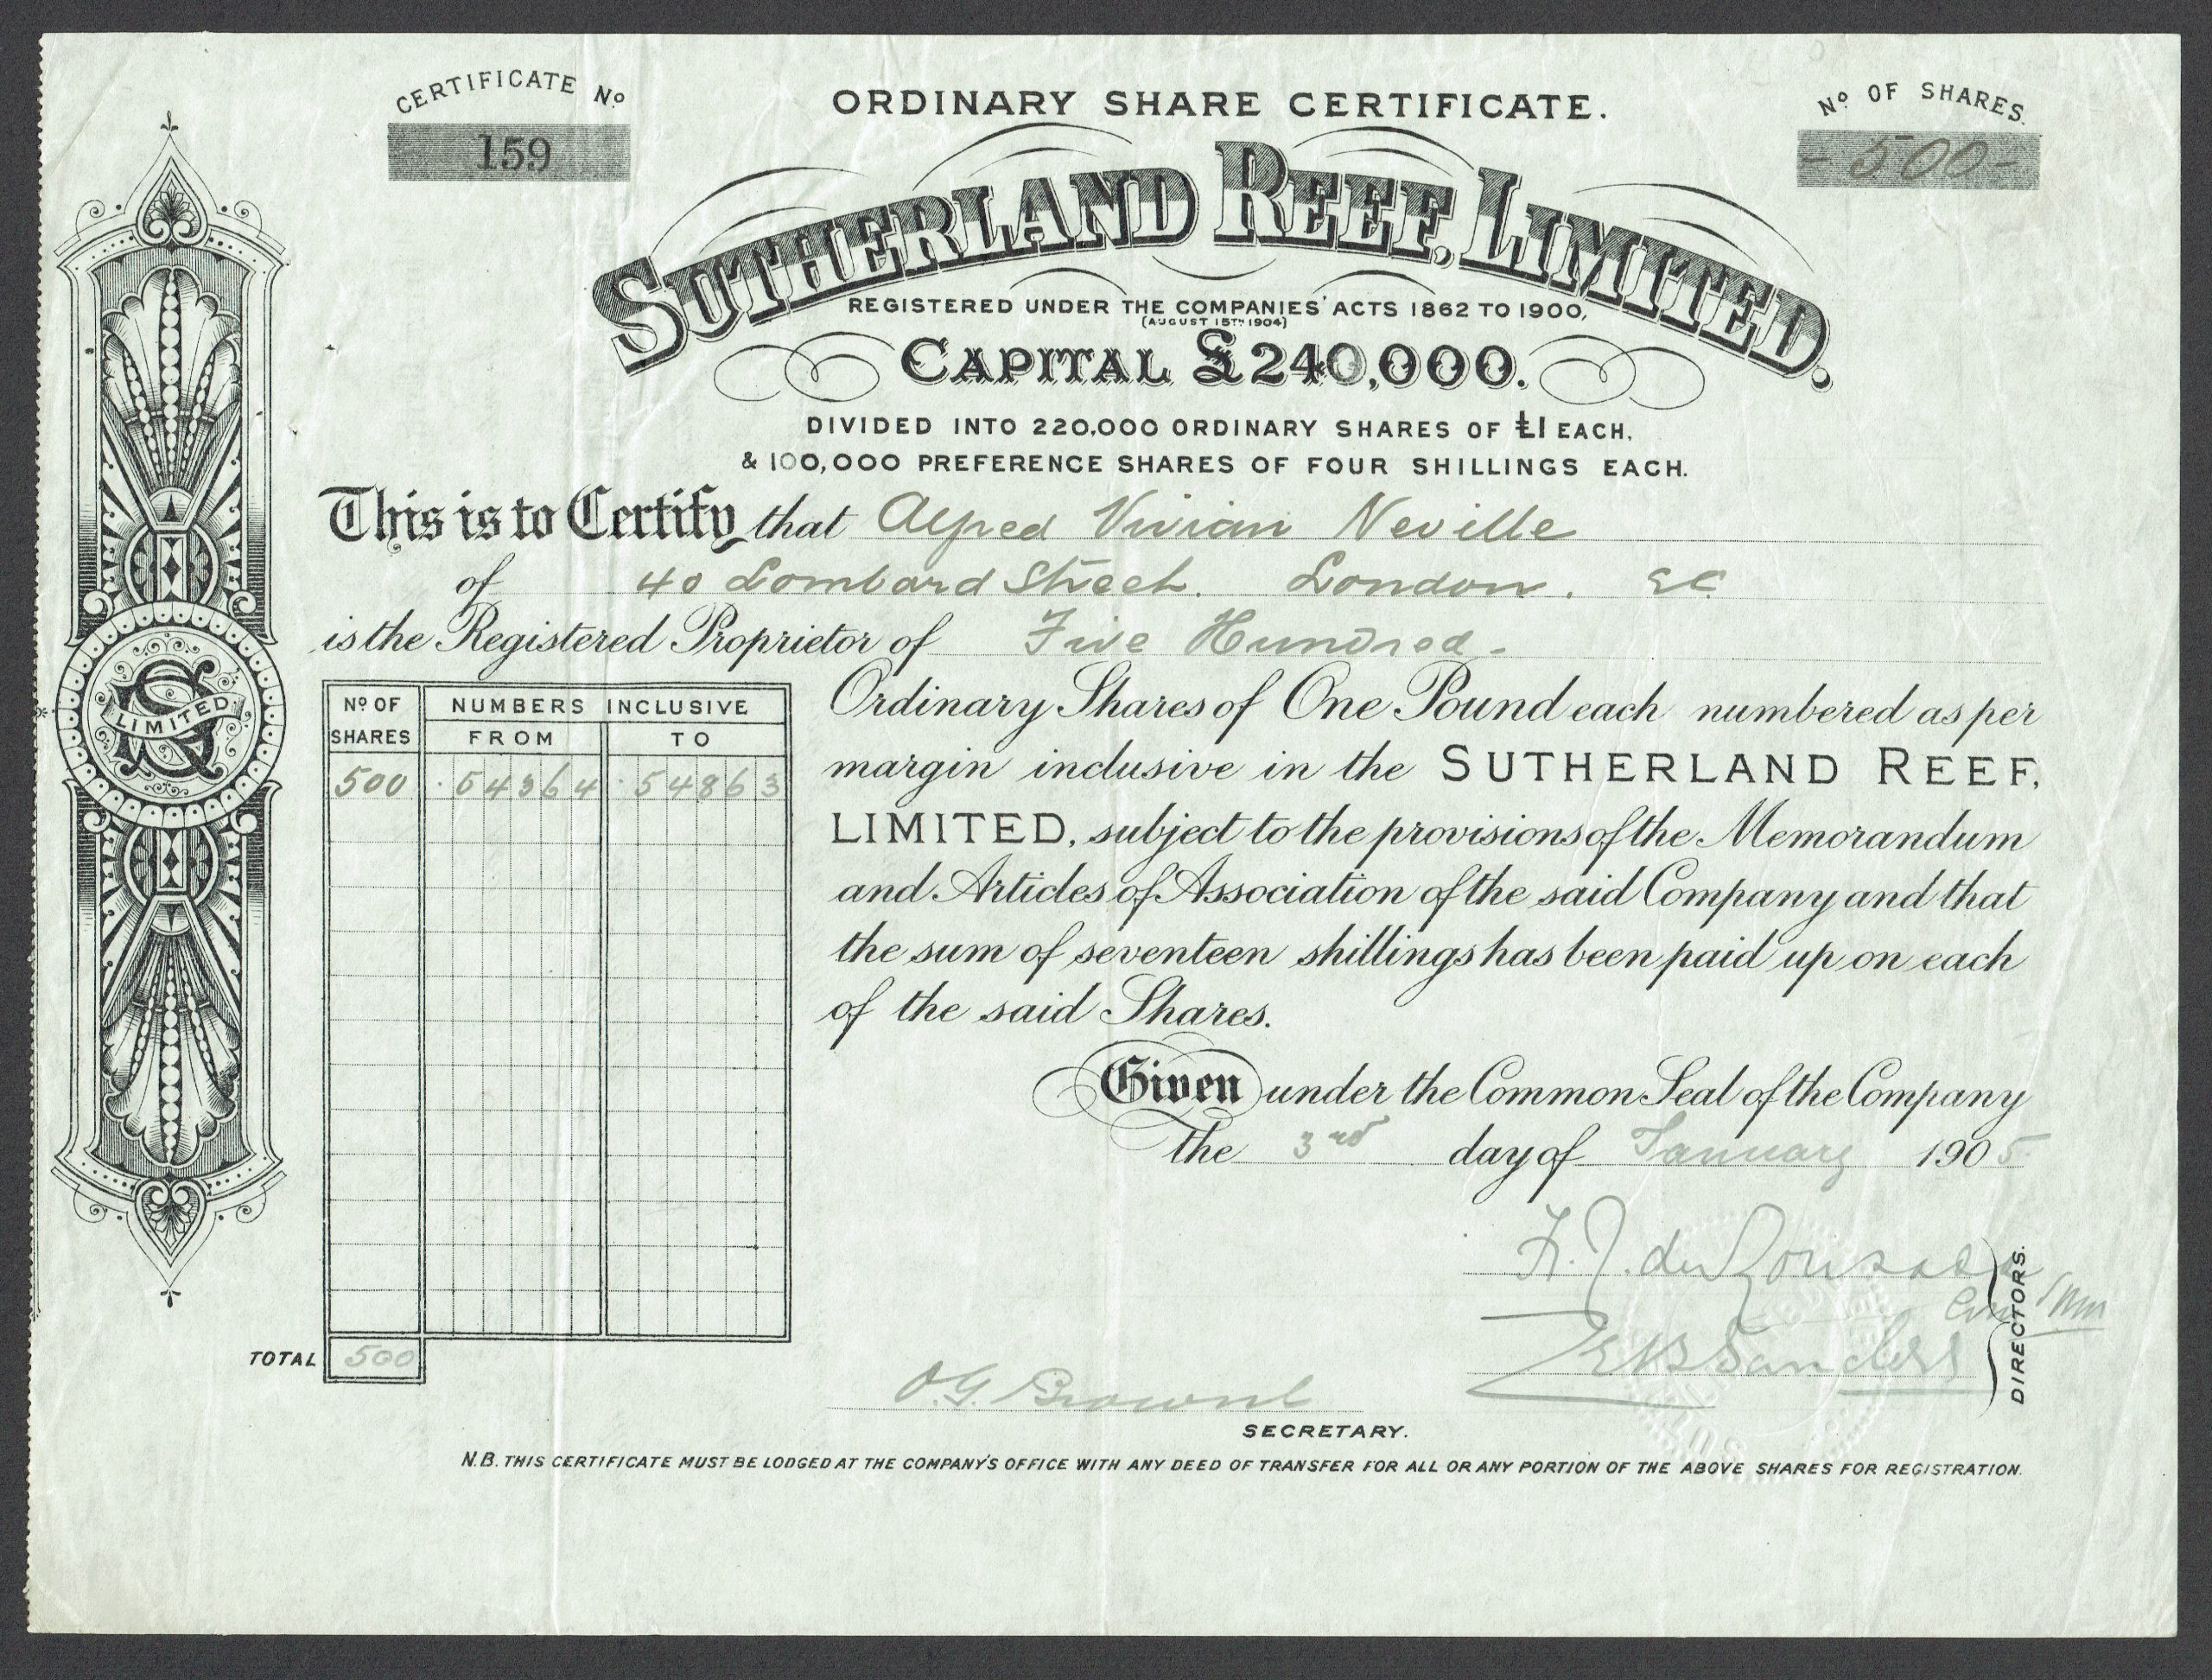 CERTIFICATE Nº
159
ORDINARY SHARE CERTIFICATE.
Nº OF SHARES.
- 500 -
SUTHERLAND REEF, LIMITED.
REGISTERED UNDER THE COMPANIES' ACTS 1862 TO 1900,
(AUGUST 15TH 1904)
CAPITAL £240,000.
DIVIDED INTO 220,000 ORDINARY SHARES OF £1 EACH.
& 100,000 PREFERENCE SHARES OF FOUR SHILLINGS EACH.
This is to Certify that Alfred Vivian Neville
of 40 Lombard Street. London. E.C.
is the Registered Proprietor of Five Hundred -
Ordinary Shares of One Pound each numbered as per
margin inclusive in the SUTHERLAND REEF,
LIMITED, subject to the provisions of the Memorandum
and Articles of Association of the said Company and that
the sum of seventeen shillings has been paid up on each
of the said Shares.
Nº OF SHARES
NUMBERS INCLUSIVE
FROM TO
500 54364 54863
TOTAL 500
LIMITED
Given under the Common Seal of the Company
the 3rd day of January 1905
Sanders
DIRECTORS.
O.G.
SECRETARY.
N.B. THIS CERTIFICATE MUST BE LODGED AT THE COMPANY'S OFFICE WITH ANY DEED OF TRANSFER FOR ALL OR ANY PORTION OF THE ABOVE SHARES FOR REGISTRATION.